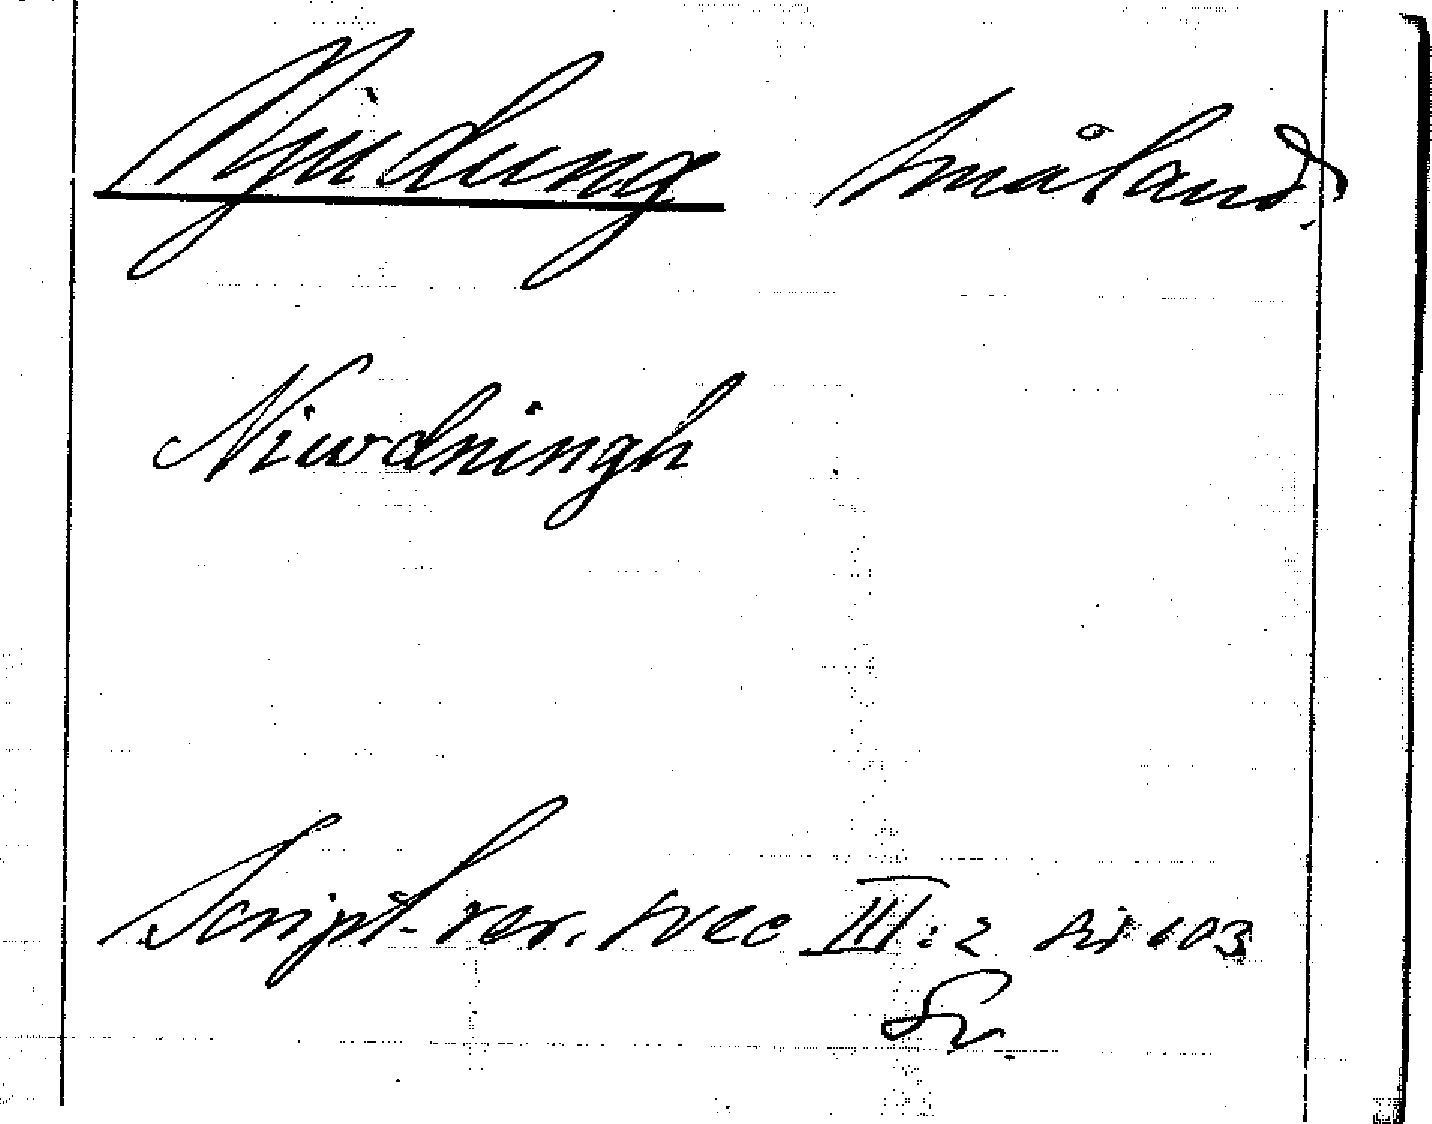 Njudung Småland.
Niwdningh
Script. rer. svec III: 2 sid 103